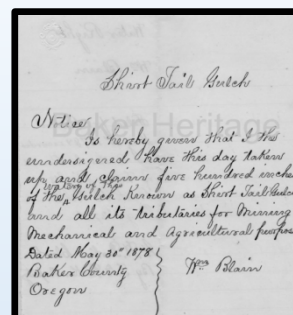 Shirt Tail Gulch
Notice
Is hereby given that I the
undersigned have this day taken
up and claim five hundred inches
waters of this
of the Gulch Known as Shirt Tail Gulch
and all its tributaries for Mining
Mechanical and Agricultural purpose
Dated May 30th 1878
Baker County
Oregon
Wm Blain
Baker Heritage